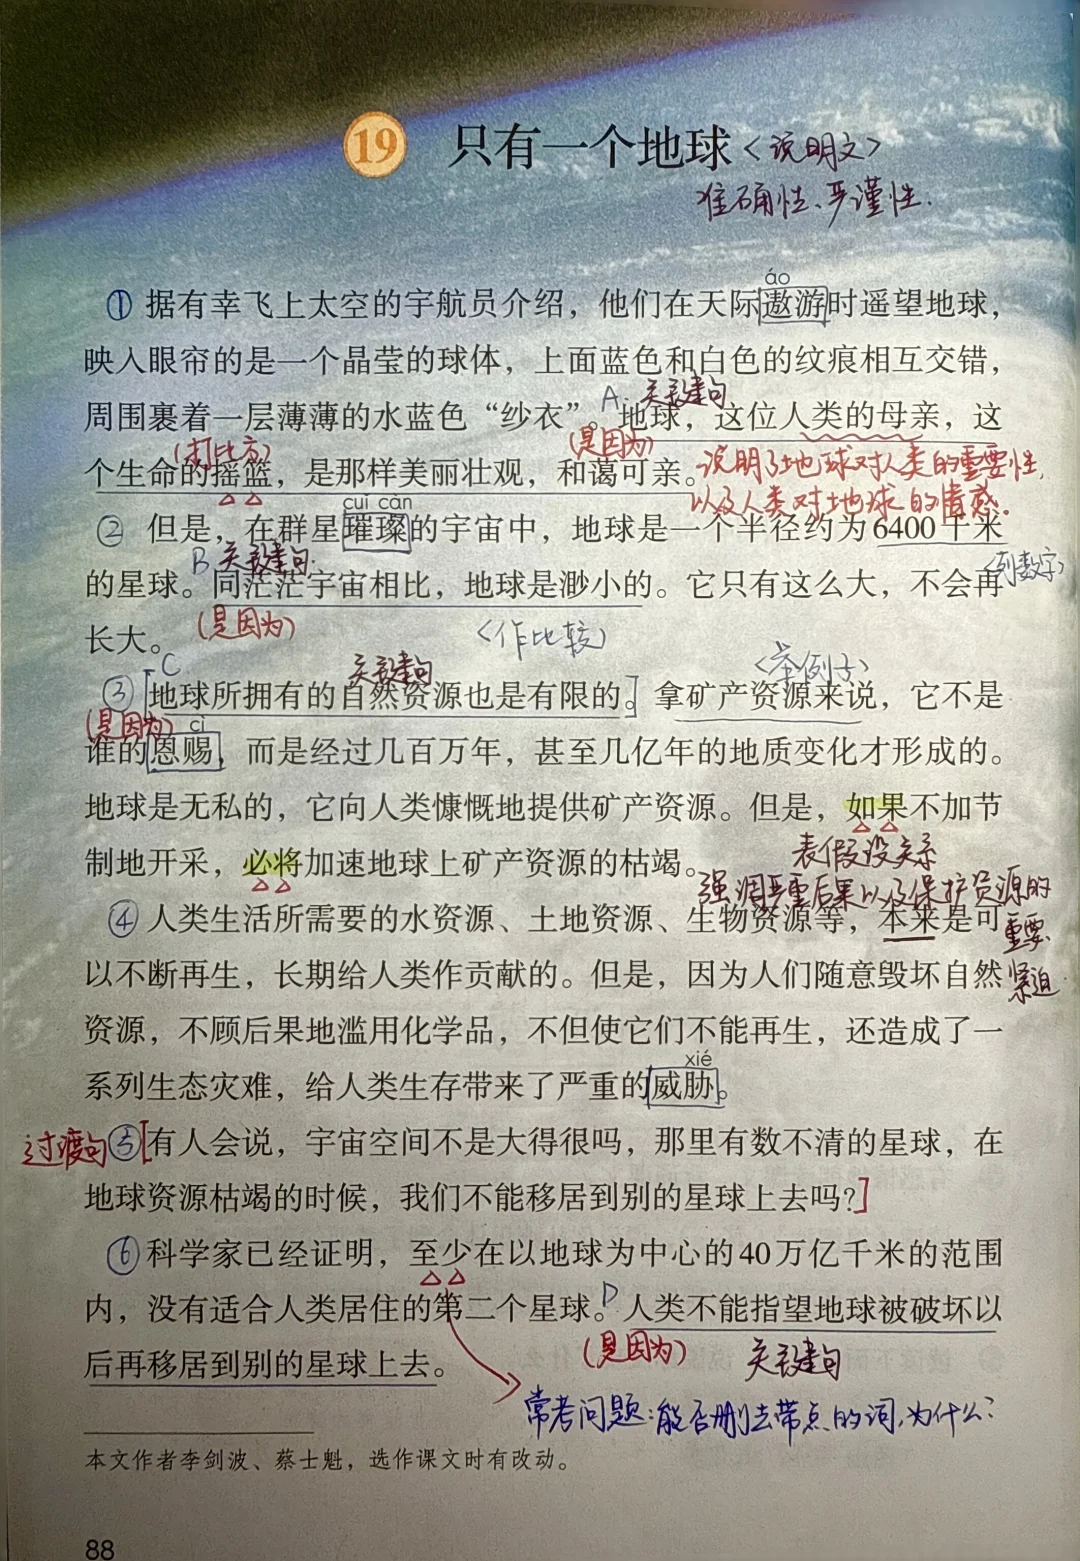 19 只有一个地球 <说明文>
准确性、严谨性.
áo
① 据有幸飞上太空的宇航员介绍，他们在天际遨游时遥望地球，
映入眼帘的是一个晶莹的球体，上面蓝色和白色的纹痕相互交错，
A. 关键句
周围裹着一层薄薄的水蓝色“纱衣”。地球，这位人类的母亲，这
(打比方) (是因为)
个生命的摇篮，是那样美丽壮观，和蔼可亲。说明了地球对人类的重要性，
以及人类对地球的情感.
cuǐ càn
② 但是，在群星璀璨的宇宙中，地球是一个半径约为6400千米
B 关键句. <列数字>
的星球。同茫茫宇宙相比，地球是渺小的。它只有这么大，不会再
长大。 (是因为) <作比较>
C 关键句 <举例子>
③ [地球所拥有的自然资源也是有限的。] 拿矿产资源来说，它不是
(是因为) cì
谁的恩赐，而是经过几百万年，甚至几亿年的地质变化才形成的。
地球是无私的，它向人类慷慨地提供矿产资源。但是，如果不加节
制地开采，必将加速地球上矿产资源的枯竭。 表假设关系
强调严重后果以及保护资源的
重要
紧迫
④ 人类生活所需要的水资源、土地资源、生物资源等，本来是可
以不断再生，长期给人类作贡献的。但是，因为人们随意毁坏自然
资源，不顾后果地滥用化学品，不但使它们不能再生，还造成了一
xié
系列生态灾难，给人类生存带来了严重的威胁。
过渡句 ⑤ [有人会说，宇宙空间不是大得很吗，那里有数不清的星球，在
地球资源枯竭的时候，我们不能移居到别的星球上去吗?]
⑥ 科学家已经证明，至少在以地球为中心的40万亿千米的范围
内，没有适合人类居住的第二个星球。D 人类不能指望地球被破坏以
(是因为) 关键句
后再移居到别的星球上去。
常考问题:能否删去带点的词,为什么?
本文作者李剑波、蔡士魁，选作课文时有改动。
88